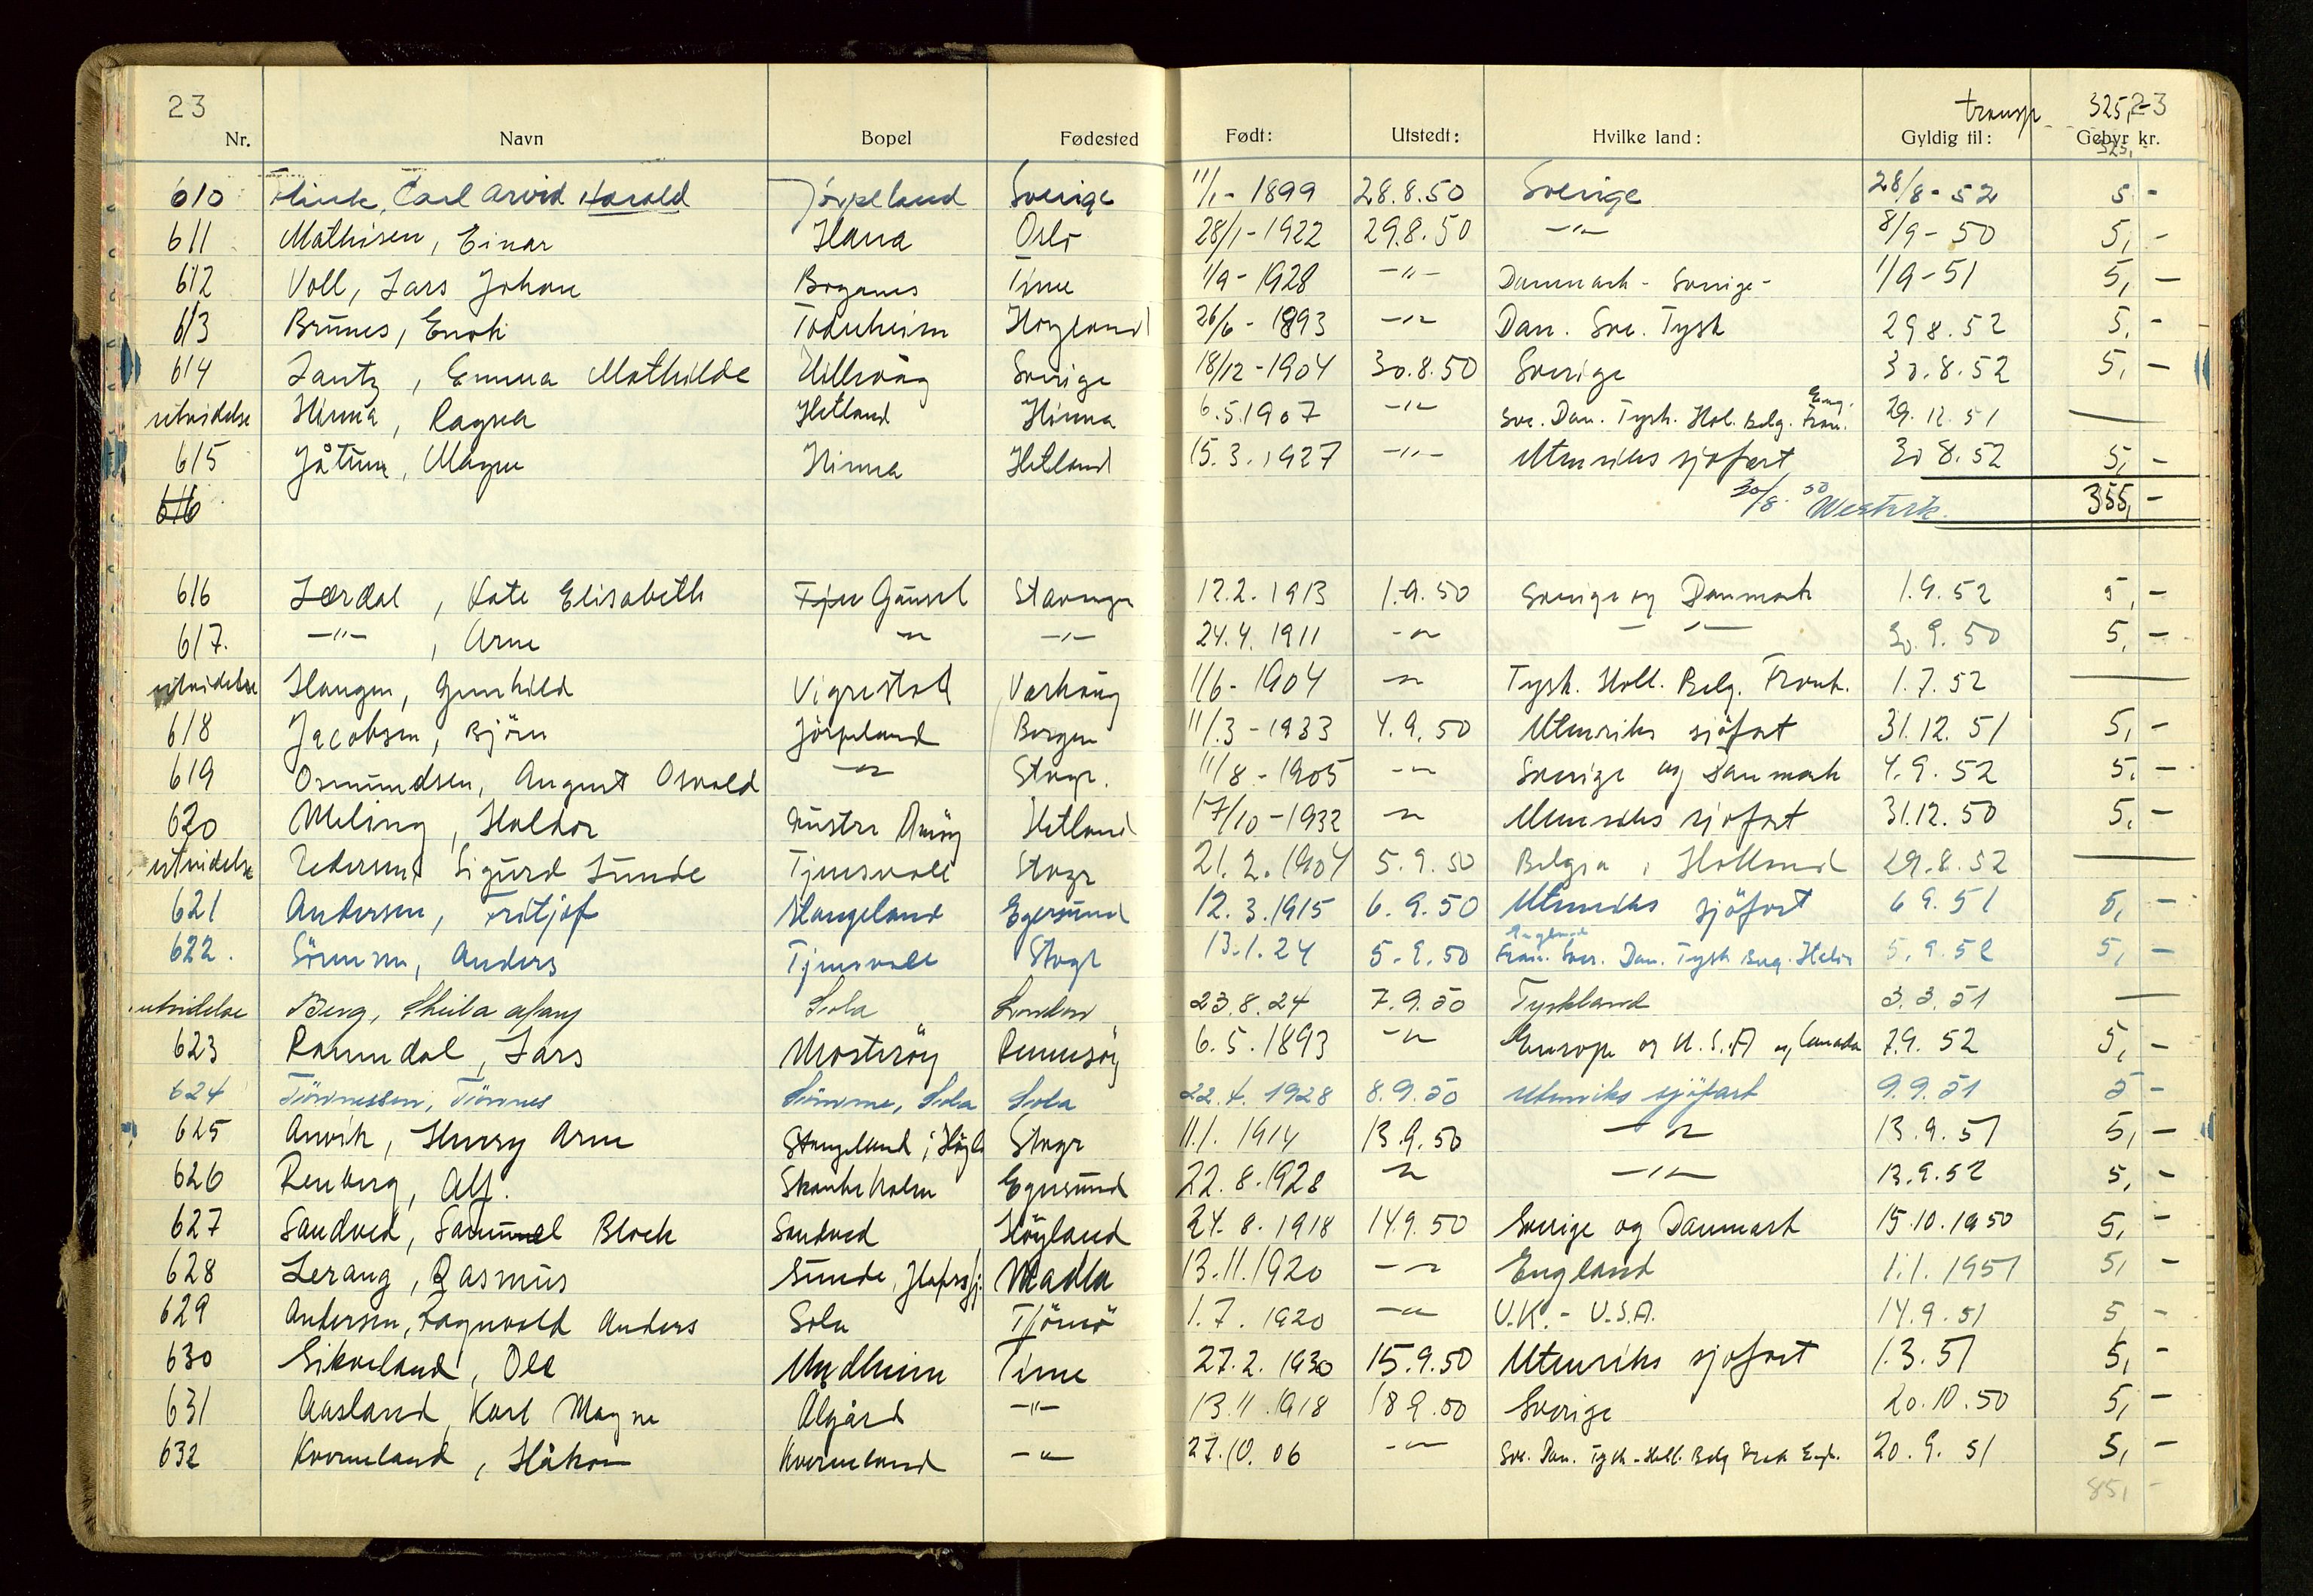 23
transp. 325,- 23
Nr. Navn Bopel Fødested Født: Utstedt: Hvilke land: Gyldig til: Gebyr kr.
325,-
610 Carl Arvid Harold Jörpeland Sverige 11/1- 1899 28.8.50 Sverige 28/8- 52 5 -
611 Mathisen, Einar Hana Oslo 28/1- 1922 29.8.50 -"- 8/9- 50 5, -
612 Voll, Lars Johan Boganes Time 1/9- 1928 -"- Danmark - Sverige - 1/9-51 5, -
613 Brunes, Enok Todnheim Høyland 26/6- 1893 -"- Dan. Sve. Tysk 29 8. 52 5, -
614 Lantz, Emma Mathilde Hillevåg Sverige 18/12-1904 30.8.50 Sverige 30.8.52 5, -
utvidelse Hinna, Ragna Hetland Hinna 6.5.1907 -"- Sve. Dan. Tysk. Hol. Belg. Fran. Eng. 29. 12. 51 —
615 Jåtun, Magne Hinna Hetland 15.3.1927 -"- Utenriks sjøfart 30 8.52 5, -
616 30/8. 50 355, -
616 Lærdal, Kate Elisabeth Gausel Stavanger 12.2.1913 1.9.50 Sverige og Danmark 1.9.52 5, -
617. -"- , Arne -"- -"- 24.4.1911 -"- -"- 30.9.50 5, -
utvidelse Haugen, Gunhild Vigrestad Varhaug 1/6- 1904 -"- Tysk. Holl. Belg. Frank. 1.7.52 —
618 Jacobsen, Björn Jörpeland Bergen 11/3-1933 4.9.50 Utenriks sjöfart 31.12.51 5, -
619 Osmundsen, August Osvald -"- Stvgr. 11/8-1905 -"- Sverige og Danmark 4.9.52 5. -
620 Meling, Haldor Austre Åmøy Hetland 17/10-1932 -"- Utenriks sjøfart 31.12.50 5. -
utvidelse Pedersen, Sigurd Lunde Tjensvoll Stvgr 21.2.1904 5.9.50 Belgia, Holland 29.8.52 —
621 Andersen, Fritjof Haugeland Egersund 12.3.1915 6.9.50 Utenriks sjöfart 6 9.51 5, -
622. Sörensen, Anders Tjensvoll Stvgr 13.1.24 5.9.50 England Fran. Sver. Dan. Tysk 5.9.52 5, -
utvidelse Berg, Sheila Mary Sola London 23.8.24 7.9.50 Tyskland 3.3.51 —
623 Ramndal, Lars Mosterøy Rennesøy 6.5.1893 -"- Europa og U.S.A og Canada 7.9.52 5, -
624 Tönnessen, Tönnes Sömme, Sola Sola 22.4.1928 8.9.50 Utenriks sjöfart 9.9.51 5 -
625 Anvik, Harry Arne Stangeland, Høyl Stvgr 11.1.1914 13.9.50 -"- 13.9.51 5, -
626 Renberg, Alf. Skadbeholm Egersund 22.8.1928 -"- -"- 13.9.52 5, -
627 Sandved, Samuel Block Sandved Höyland 24.8.1918 14.9.50 Sverige og Danmark 15.10.1950 5, -
628 Lerang, Rasmus Sunde, Hafrsfj. Madla 13.11.1920 -"- England 1.1.1951 5, -
629 Andersen, Ragnvald Anders Sola Tjömö 1.7.1920 -"- U.K. - U.S.A. 14.9.51 5 -
630 Sikveland, Ole Undheim Time 27.2.1930 15.9.50 Utenriks sjøfart 1.3.51 5, -
631 Aasland, Karl Magne Ålgård -"- 13.11.1918 18 9.50 Sverige 20.10.50 5, -
632 Kverneland, Håkon Kverneland -"- 27.10.06 -"- Sve. Dan. Tysk. Holl. Belg Frak Engl. 20.9.51 5, -
85, -